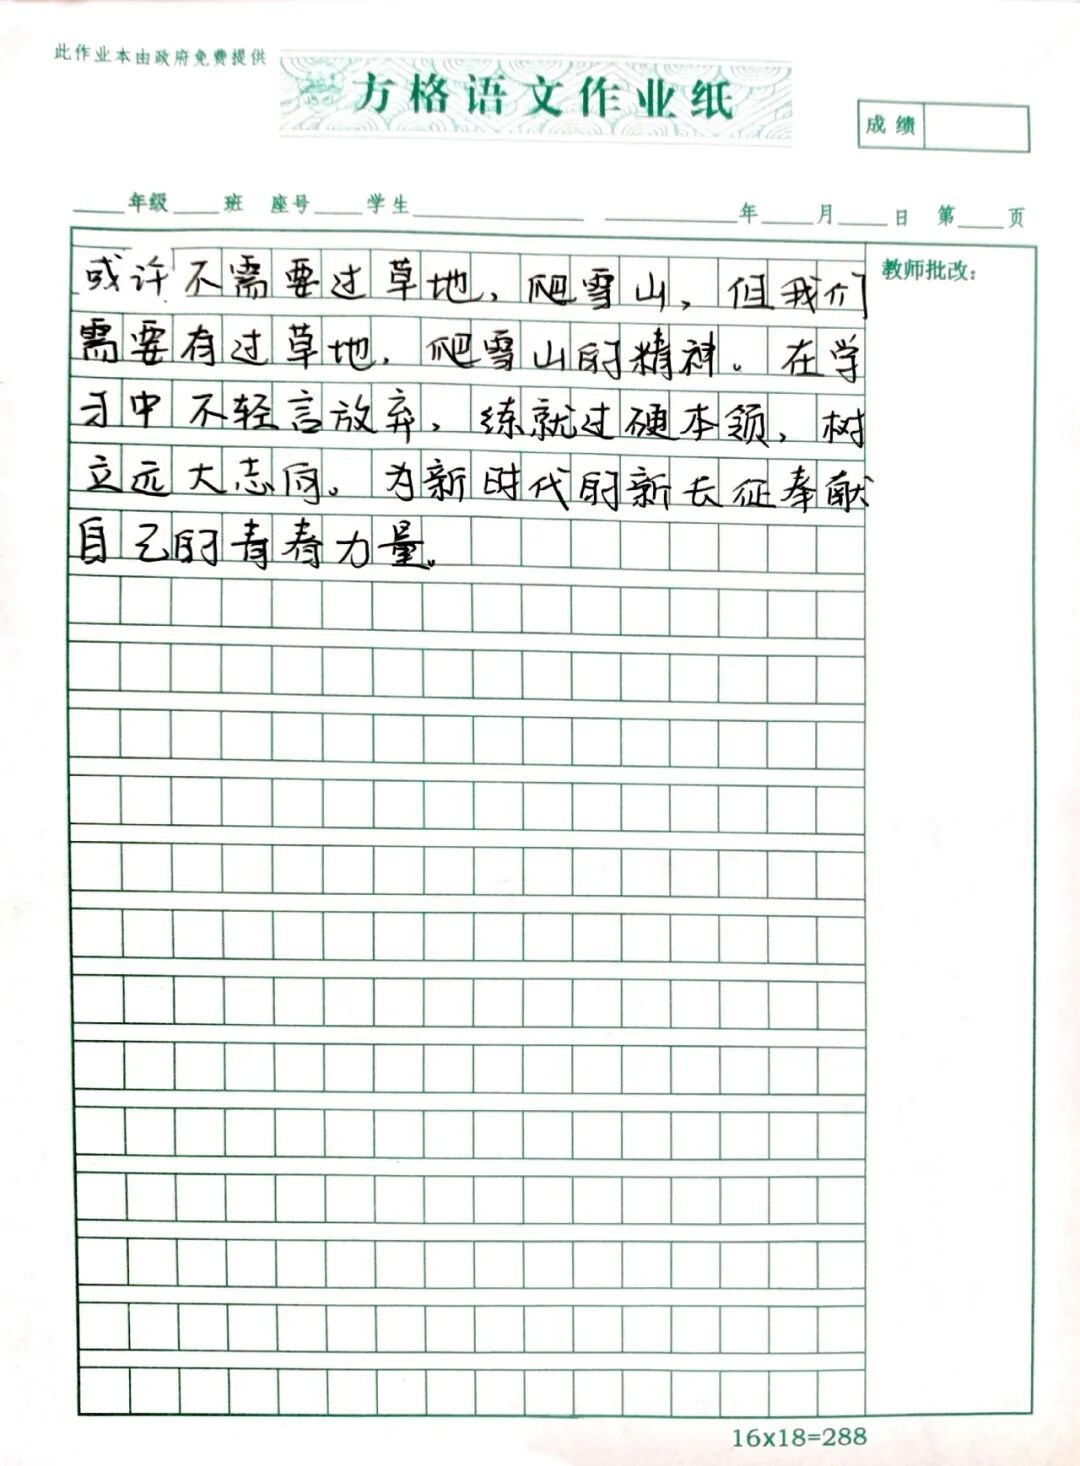 此作业本由政府免费提供
方格语文作业纸
成绩
年级 班 座号 学生 年 月 日 第 页
教师批改：
或许不需要过草地，爬雪山，但我们
需要有过草地，爬雪山的精神。在学
习中不轻言放弃，练就过硬本领，树
立远大志向。为新时代的新长征奉献
自己的青春力量。
16x18=288